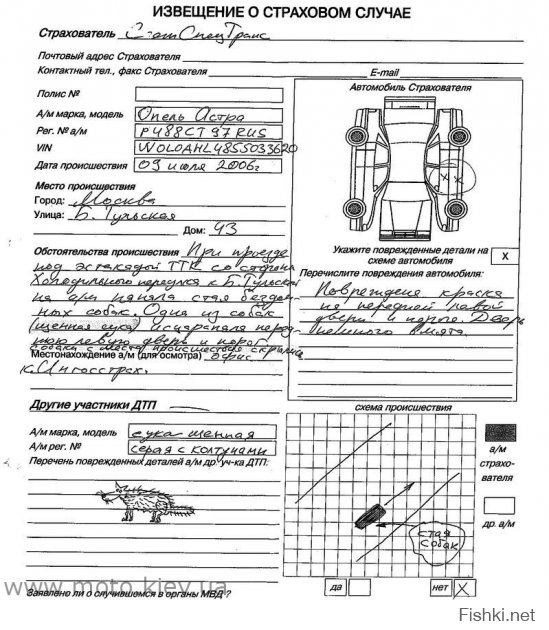 ИЗВЕЩЕНИЕ О СТРАХОВОМ СЛУЧАЕ
Страхователь СпецТранс
Почтовый адрес Страхователя
Контактный тел., факс Страхователя E-mail
Полис №
А/м марка, модель Опель Астра
Рег. № а/м Р488СТ97RUS
VIN W0L0AHL4855033620
Дата происшествия 09 июля 2006г
Место происшествия
Город: Москва
Улица: Б. Тульская
Дом: 43
Обстоятельства происшествия При проезде
под эстакадой ТТК со стороны
Холодильного переулка к Б. Тульской
на а/м напала стая бездом-
ных собак. Одна из собак
(щенная сука) исцарапала перед-
нюю левую дверь и порог
собаки с места происшествия скрылись
Местонахождение а/м (для осмотра) офис
к. Ингосстрах.
Автомобиль Страхователя
x x
Укажите поврежденные детали на
схеме автомобиля
X
Перечислите повреждения автомобиля:
Повреждена краска
на передней левой
двери и пороге Дверь
немного мята
Другие участники ДТП
А/м марка, модель сука щенная
А/м рег. № серая с колтунами
Перечень поврежденных деталей а/м др. уч-ка ДТП:
схема происшествия
а/м
страхо-
вателя
др. а/м
стая
собак
Заявлено ли о случившемся в органы МВД ?
да
нет X
www.moto.kiev.ua
Fishki.net